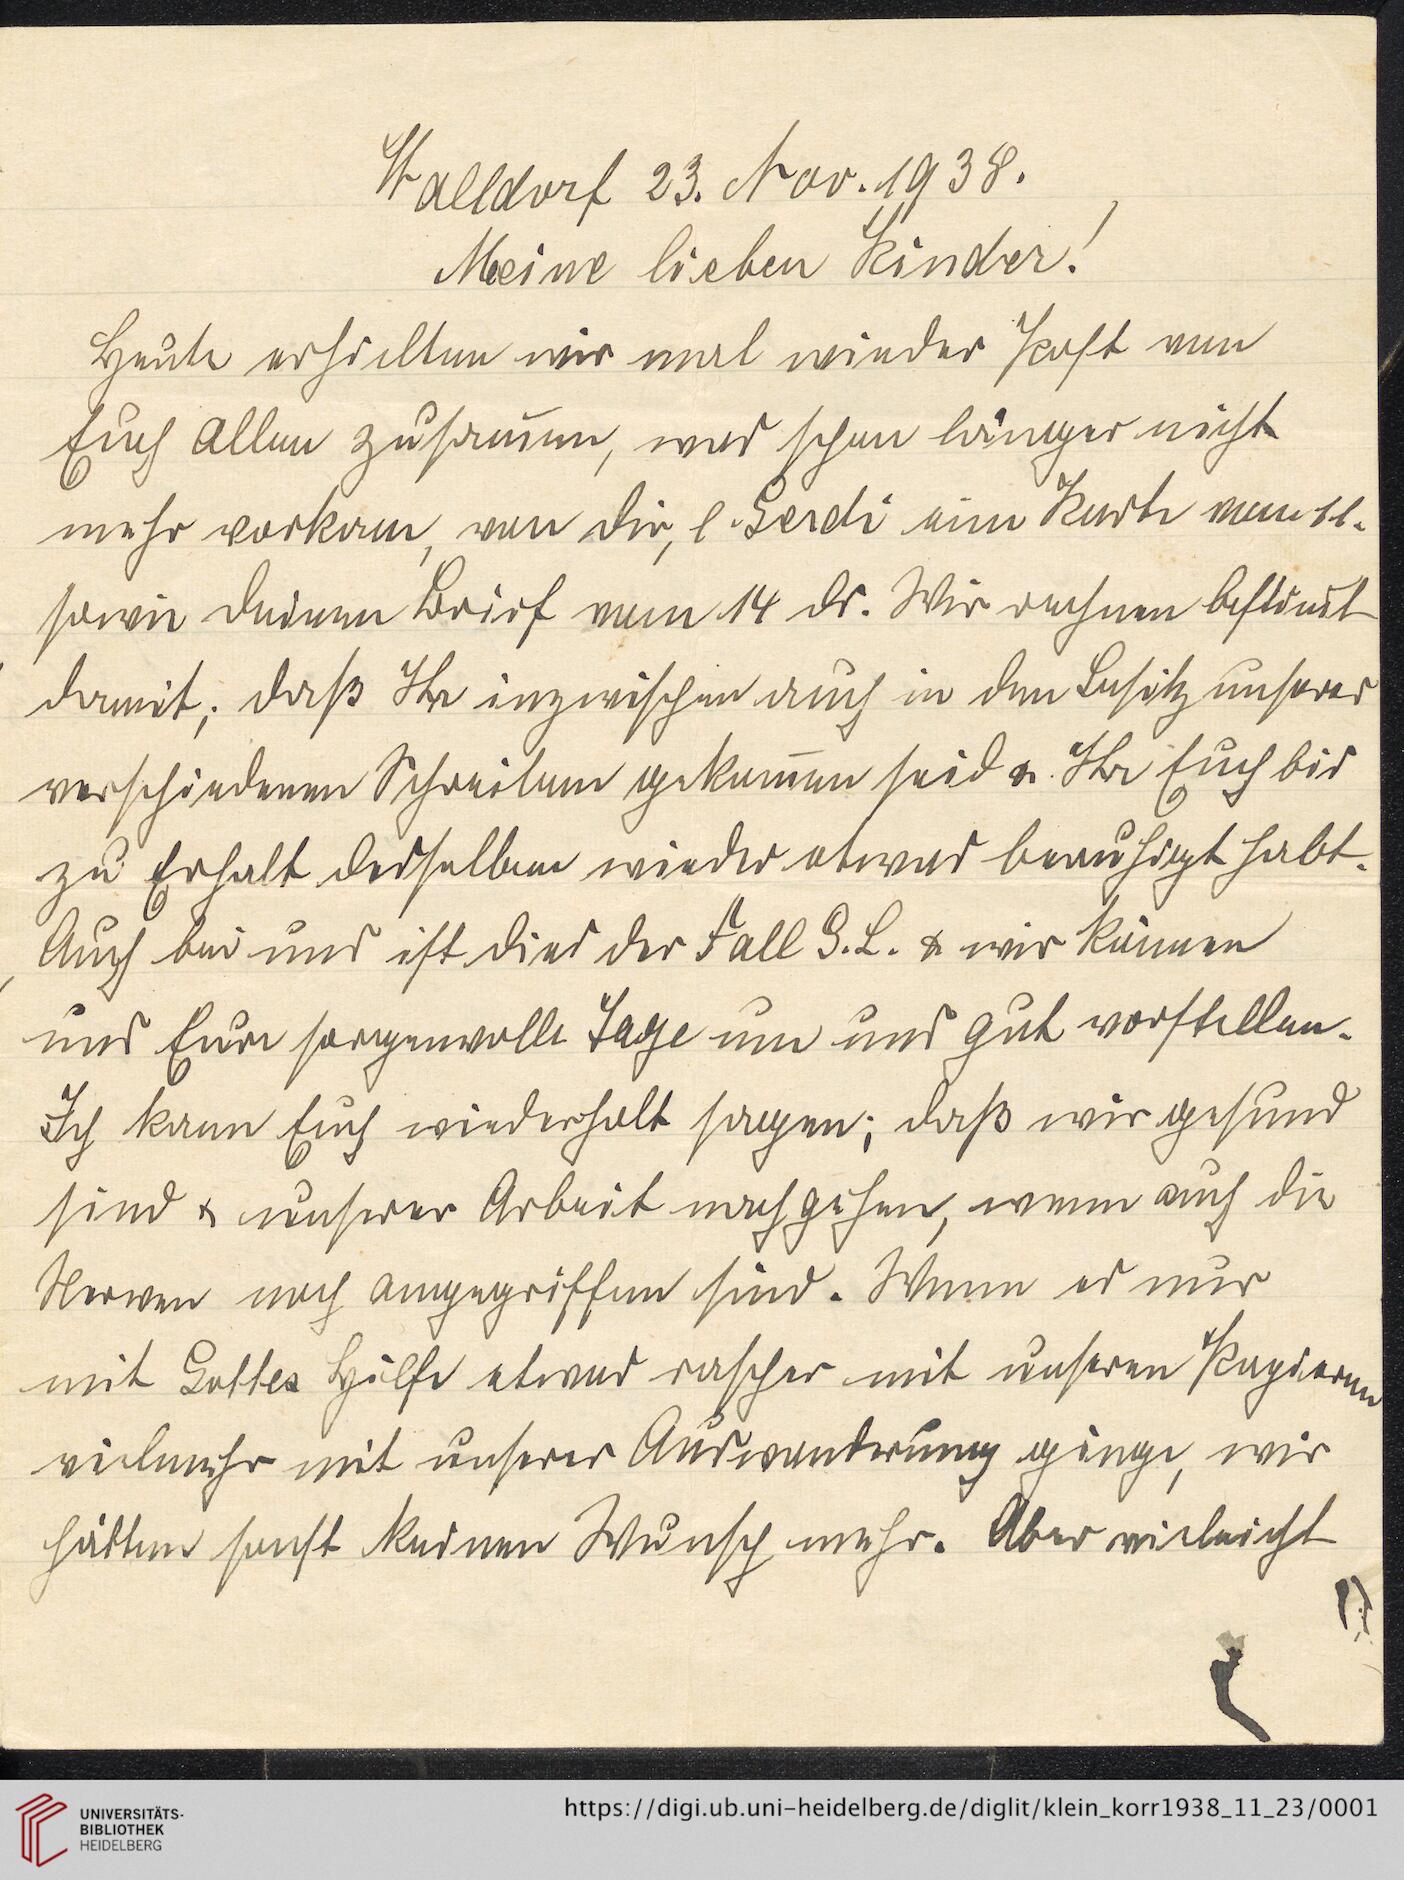 Walldorf 23. Nov. 1938.
Meine lieben Kinder!
Heute erhielten wir mal wieder Post von
Euch allen zusam̅en, was schon länger nicht
mehr vorkam, von Dir, l. Gerdi eine Karte vom 11.
sowie Deinen Brief vom 14 ds. Wir rechnen bestim̅t
damit, daß Ihr inzwischen auch in den Besitz unserer
verschiedenen Schreiben gekom̅en seid u. Ihr Euch bis
zu Erhalt desselben wieder etwas beruhigt habt.
Auch bei uns ist dies der Fall G. L. & wir können
uns Eure sorgenvolle Tage um uns gut vorstellen.
Ich kann Euch wiederholt sagen, daß wir gesund
sind & unserer Arbeit nachgehen, wenn auch die
Nerven noch angegriffen sind. Wenn es nur
mit Gottes Hilfe etwas rascher mit unseren Papieren
vielmehr mit unserer Auswanderung ginge, wir
hätten sonst keinen Wunsch mehr. Aber vieleicht
UNIVERSITÄTS-
BIBLIOTHEK
HEIDELBERG
https://digi.ub.uni-heidelberg.de/diglit/klein_korr1938_11_23/0001